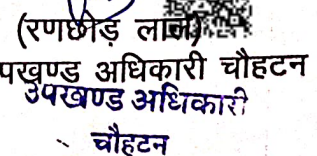 (रणछोड़ लाल)
पखण्ड अधिकारी चौहटन
उपखण्ड अधिकारी
चौहटन